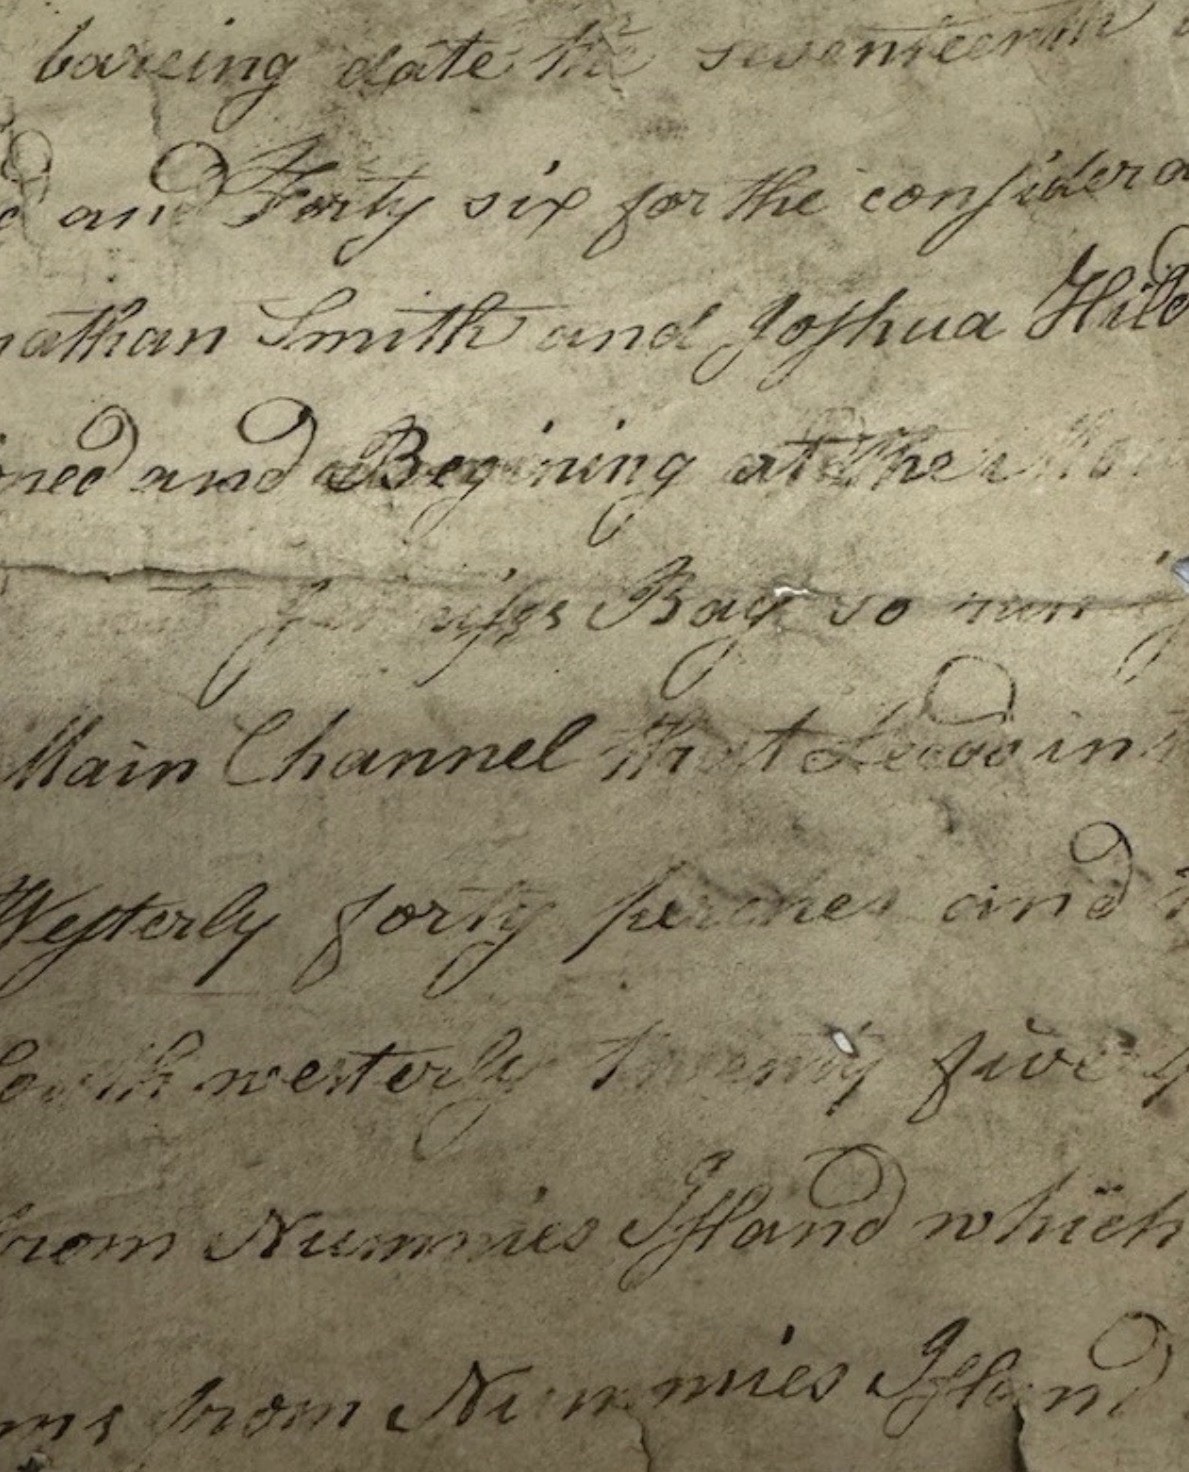 bareing date the seventeenth
and Forty six for the considera
nathan Smith and Joshua Hild
oned and Begining at the
Bay so runing
Main Channel that Leads in
Westerly forty perches and
South westerly twenty five
from Nummies Island which
ms from Nummies Island